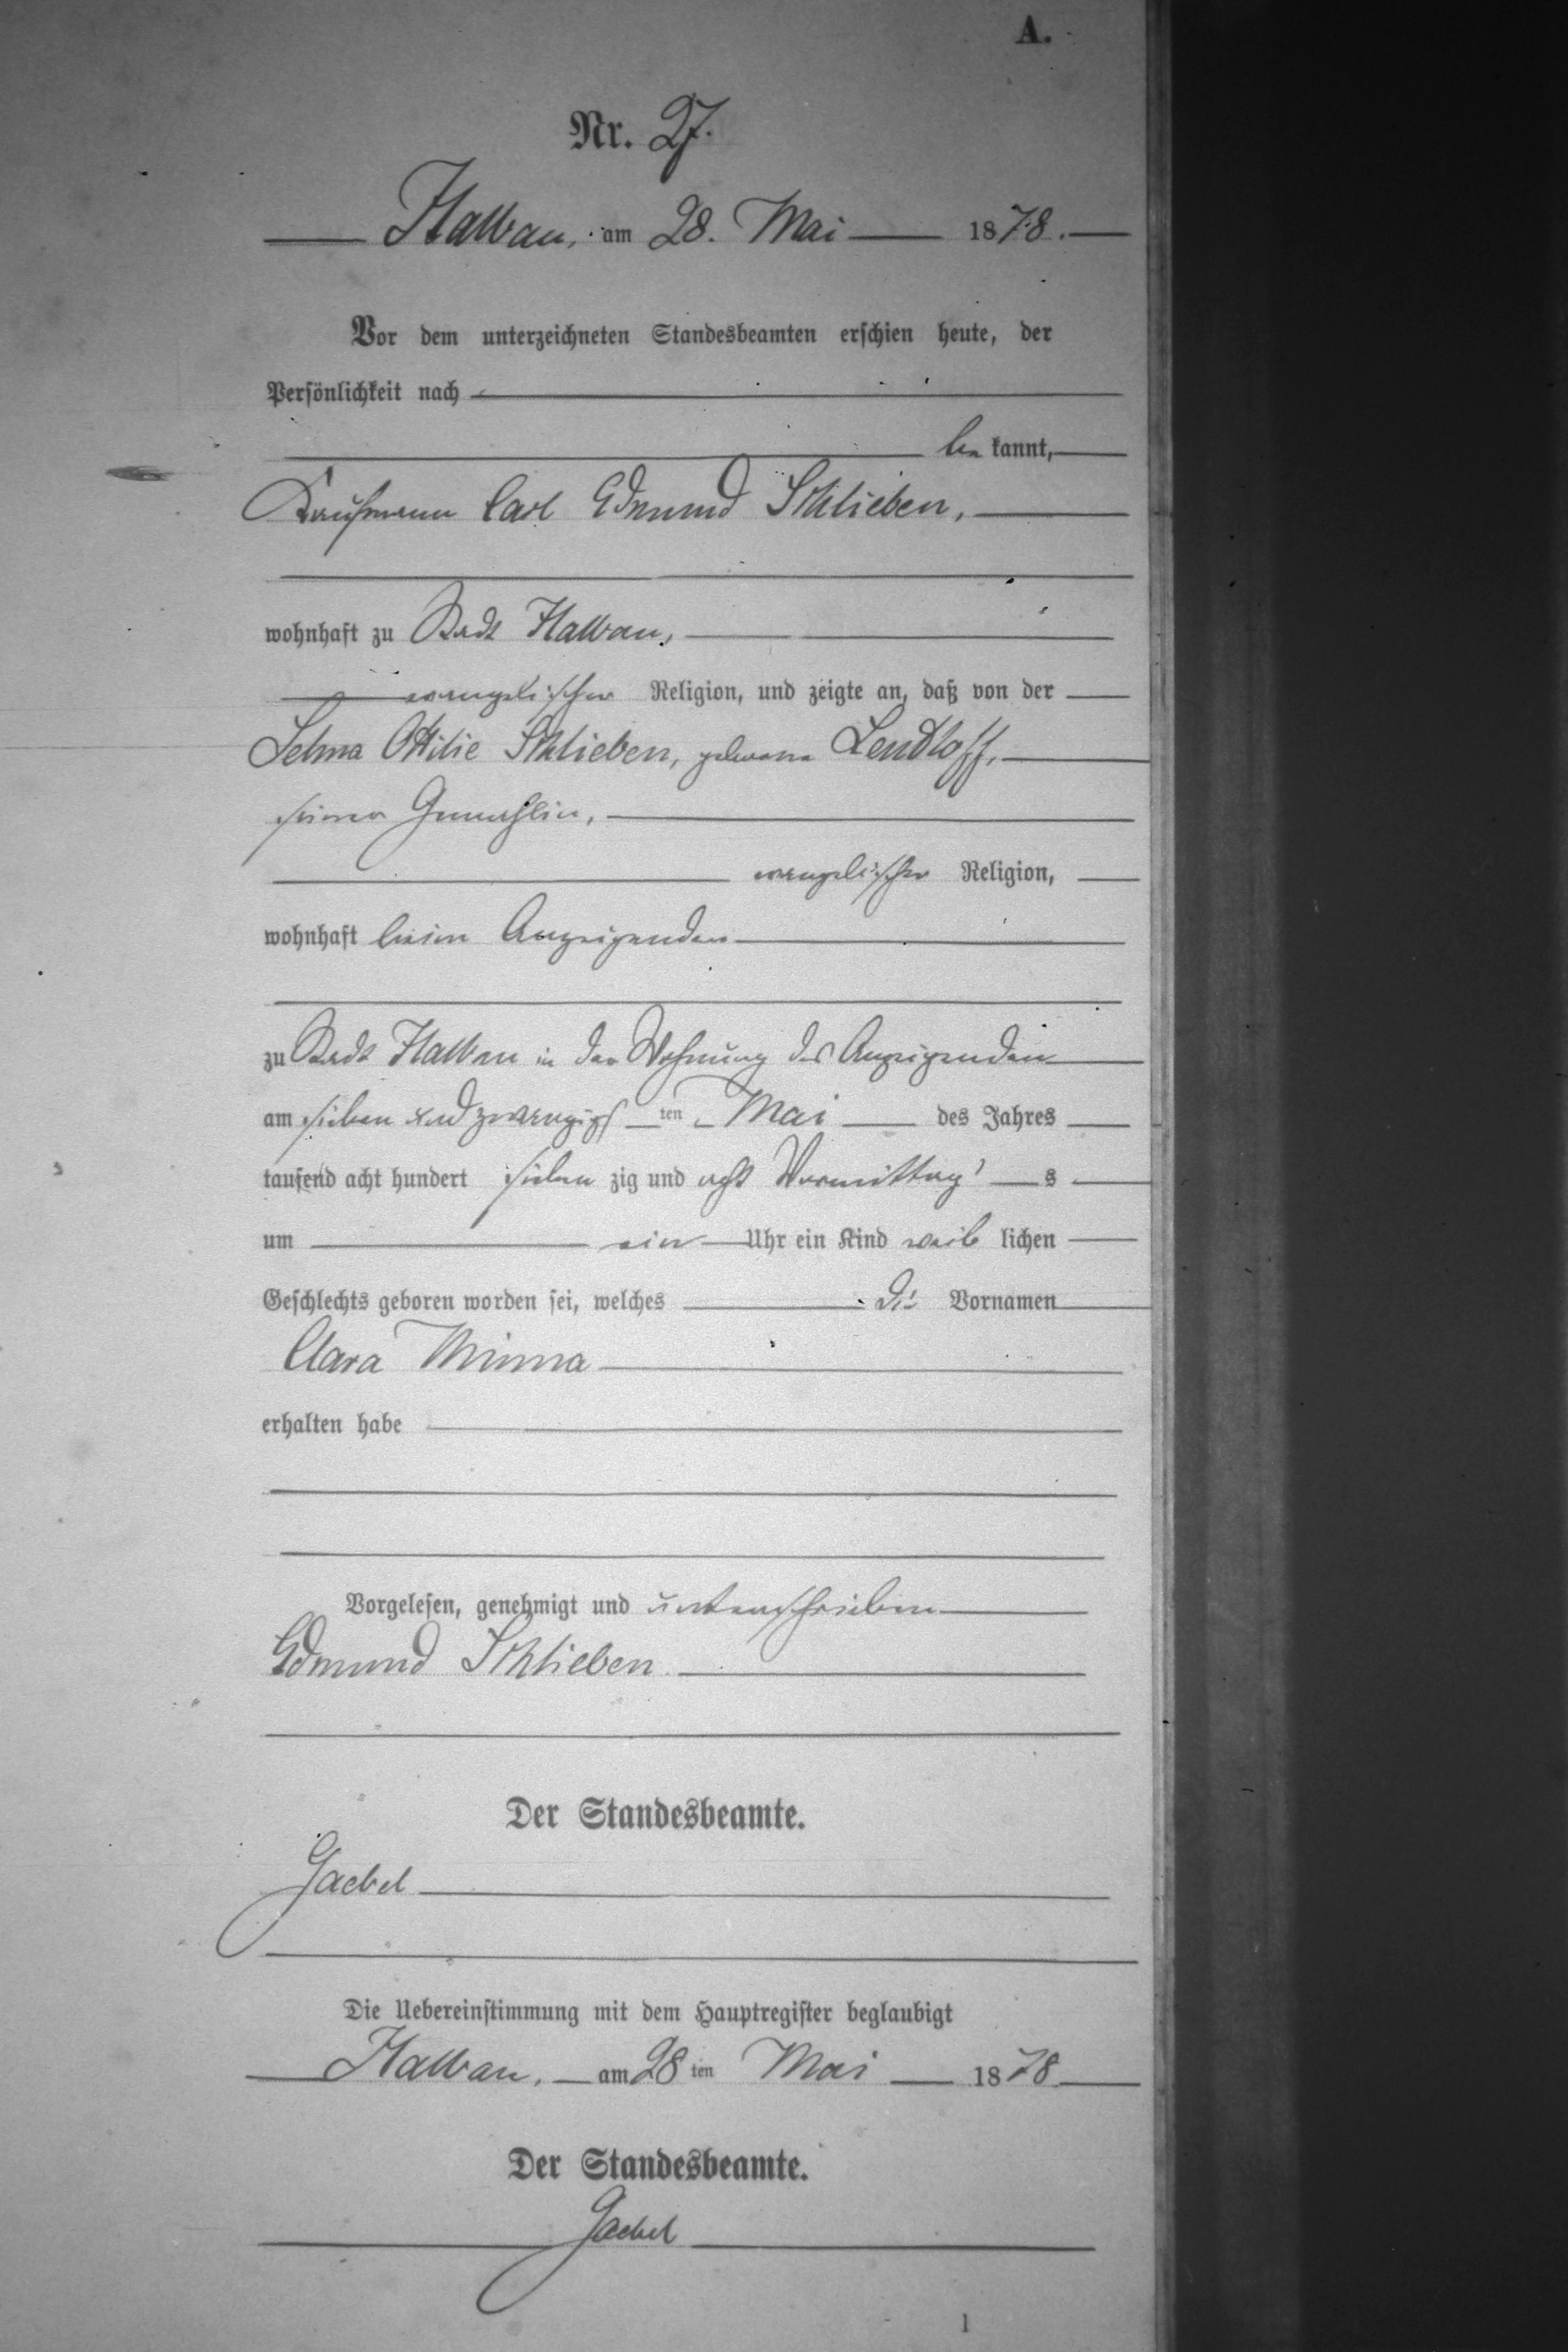 A.
Nr. 27.
Halbau, am 28. Mai 1878.
Vor dem unterzeichneten Standesbeamten erschien heute, der
Persönlichkeit nach
be kannt,
Kaufmann Carl Edmund Schlieben,
wohnhaft zu Stadt Halbau,
evangelischer Religion, und zeigte an, daß von der
Selma Ottilie Schlieben, geborene Lendloff,
seiner Gemahlin,
evangelischer Religion,
wohnhaft beim Anzeigenden
zu Stadt Halbau in der Wohnung des Anzeigenden
am sieben und zwanzigs ten Mai des Jahres
tausend acht hundert sieben zig und acht Vormittag s
um ein Uhr ein Kind weib lichen
Geschlechts geboren worden sei, welches die Vornamen
Clara Minna
erhalten habe
Vorgelesen, genehmigt und unterschrieben
Edmund Schlieben
Der Standesbeamte.
Gaebel
Die Uebereinstimmung mit dem Hauptregister beglaubigt
Halbau, am 28 ten Mai 1878
Der Standesbeamte.
Gaebel
1